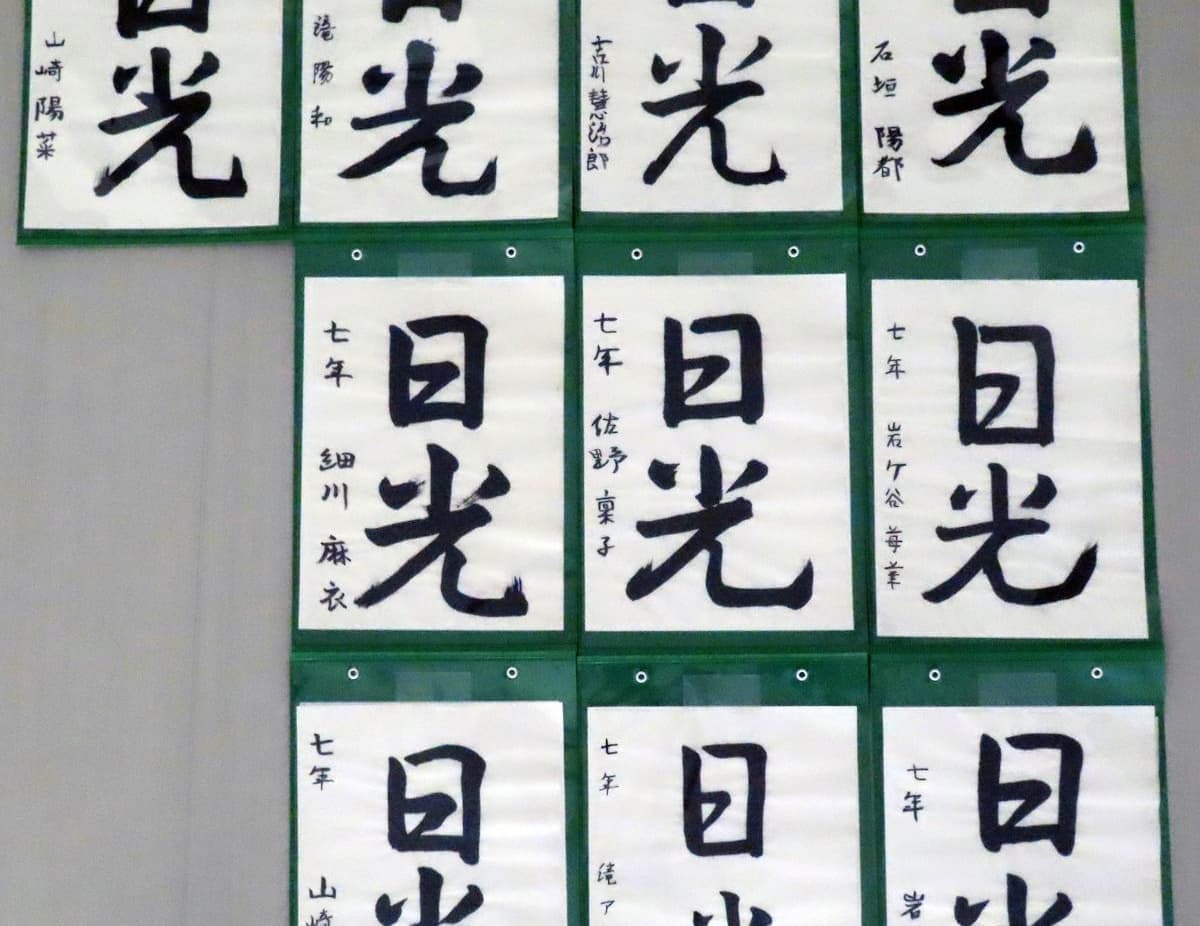 日光
石垣 陽都
日光
吉川 慧治郎
日光
陽和
日光
山崎 陽菜
日光
七年 岩ケ谷
日光
七年 佐野 稟子
日光
七年 細川 麻衣
日光
七年 岩
日光
七年
日光
七年 山崎